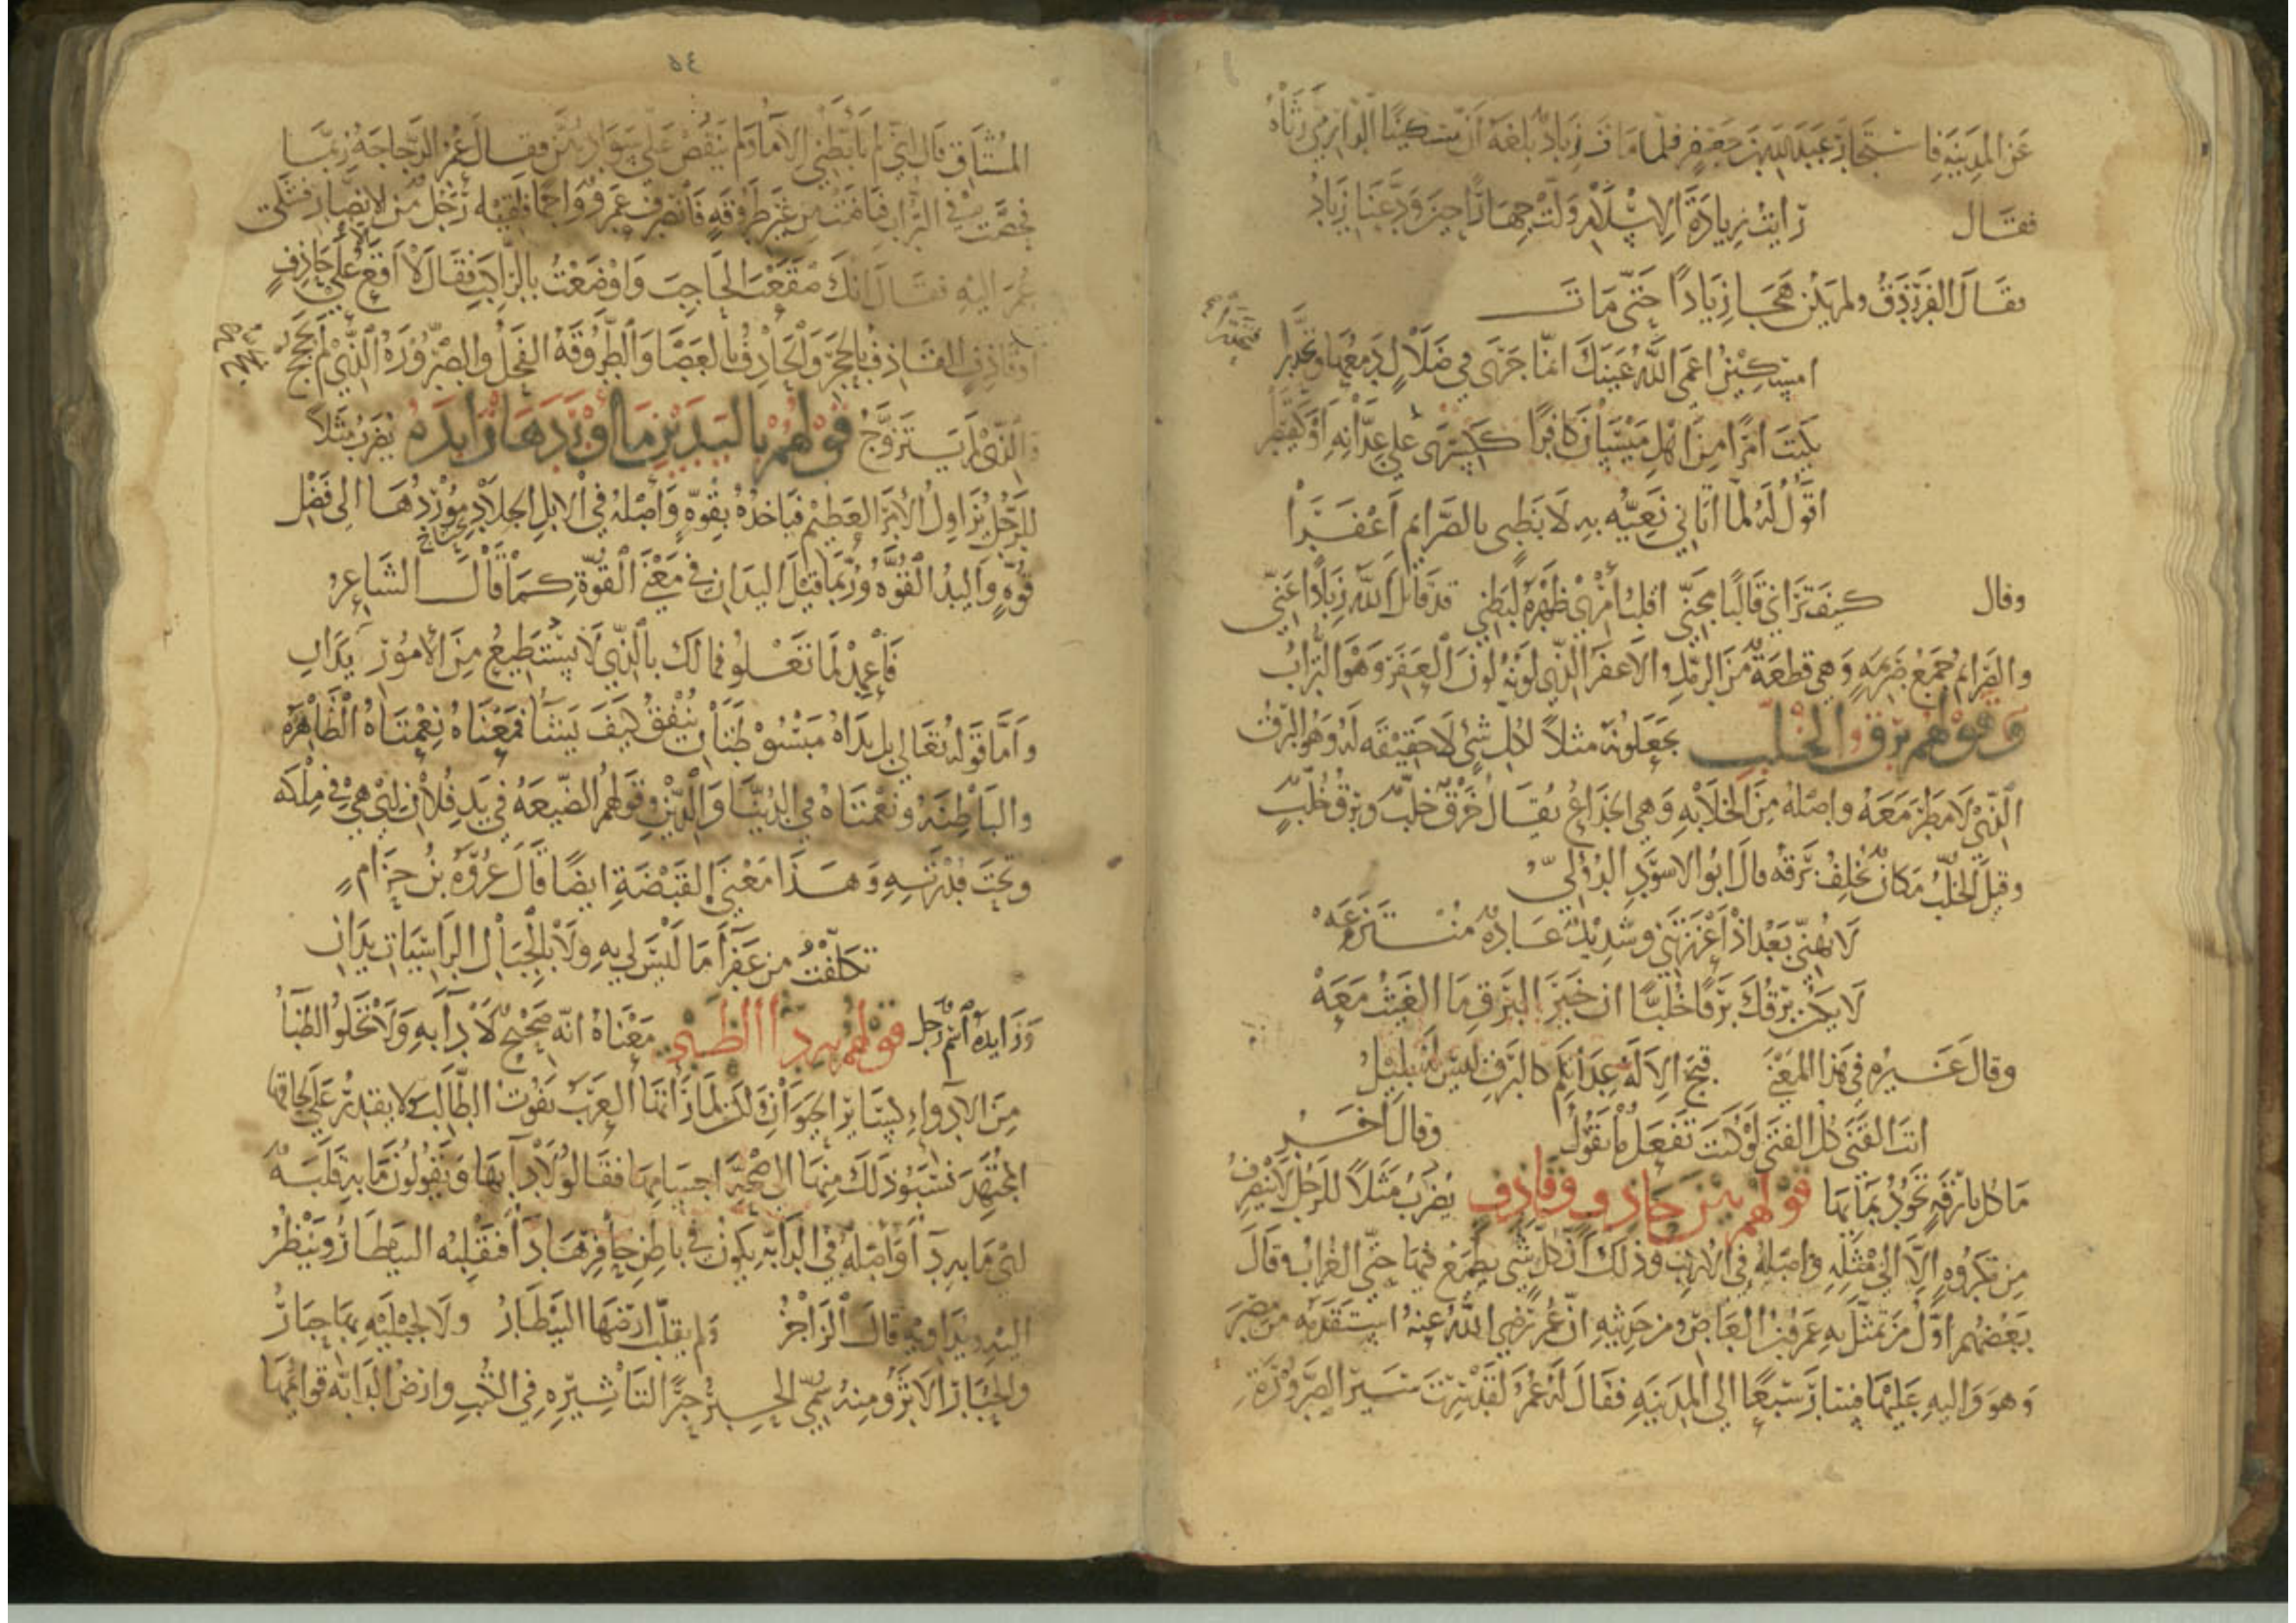 عن المدينة فاستجار عبد الله بن جعفر فلما مات زياد بلغه أن مسكينا الدارمي رثاه
فقال رأيت زيادة الإسلام ولت جهارا حين ودعنا زياد
فقال الفرزدق ولم يكن هجا زيادا حتى مات
أمسكين أعمى الله عينك إنما جرى في ضلال دمعها وتحدرا
فتحدرا
بكيت امرأ من أهل ميسان كافرا ككسرى على عدانه أو كقيصرا
أقول له لما أتاني نعيه به لا بظبي بالصرائم أعفرا
وقال كيف تراني قالبا مجني أقلب أمري ظهره لبطني قد قتل الله زيادا عني
والصرائم جمع صريمة وهي قطعة من الرمل والأعفر الذي لونه لون العفر وهو التراب
وقولهم برق الخلب يجعلونه مثلا لكل شيء لا حقيقة له وهو البرق
الذي لا مطر معه وأصله من الخلابة وهي الخداع يقال خرق خلب وبرق خلب
وقيل الخلب مكان يخلف برقه قال أبو الأسود الدؤلي
لا تهني بعد إذ أعززتني وشديد عادة منتزعه
لا يكن برقك برقا خلبا إن خير البرق ما الغيث معه
وقال غيره في هذا المعنى قبح الإله عداتكم كالبرق ليس له بليل
أنت الفتى كل الفتى لو كنت تفعل ما تقول وقال آخر
ما كل بارقة تجود بمائها قولهم بين حاذف وقاذف يضرب مثلا للرجل لا ينصرف
من مكروه إلا إلى مثله وأصله في الأرنب وذلك أن كل شيء يطمع فيها حتى الغراب وقال
بعضهم أول من تمثل به عمرو بن العاص ومن حديثه أن عمر رضي الله عنه استقدمه من مصر
وهو واليه عليها فسار سبعا إلى المدينة فقال له عمر لقد سرت مسير الصرورة
٥٤
المشتاق قال إني لم تأبطني الإماء ولم فقال عمر الزجاجة ربما
فحصت في التراب فباضت من غير طروقة فانصرف عمرو واجما فلقيه رجل من الأنصار
عمر إليه فقال إنك مقعت الحاجب وأوضعت بالراكب فقال لا أقع على حاذف
وقاذف القاذف بالحجر والحاذف بالعصا والطروقة الفحل والصرورة الذي لم يحجج
والذي لم يتزوج قولهم باليدين ما أوردها زايده يضرب مثلا
للرجل يزاول الأمر العظيم فيأخذه بقوة وأصله في الإبل الجلاد موردها إلى فضل
قوة واليد القوة وربما قيل اليدان في معنى القوة كما قال الشاعر
فاعمد لما تعلو فما لك بالذي لا تستطيع من الأمور يدان
وأما قوله تعالى بل يداه مبسوطتان ينفق كيف يشاء فمعناه نعمتاه الظاهرة
والباطنة ونعمتاه في الدنيا والدين وقولهم الضيعة في يد فلان أي هي في ملكه
وتحت قدرته وهذا معنى القبضة أيضا قال عروة بن حزام
تكلفت من عفرا ما ليس لي به ولا بالجبال الراسيات يدان
وزايده اسم رجل قولهم به داء الظبي معناه أنه صحيح لا داء به ولا تخلو الظباء
من الأدواء كسائر الحيوان لكن لما رأتها العرب تفوت الطالب ولا يقدر على لحاقها
المجتهد نسبوا ذلك منها إلى صحة أجسامها فقالوا لا داء بها ويقولون ما به قلبة
أي ما به داء وأصله في الدابة يكون في باطن حافرها داء فتقلبه البيطار وينظر
إليه ويداويه قال الراجز ولم يقلب أرضها البيطار ولا لحبليه بها حبار
والحبار الأثر ومنه سمي الحبر حبرا لتأثيره في الكتب وأرض الدابة قوائمها